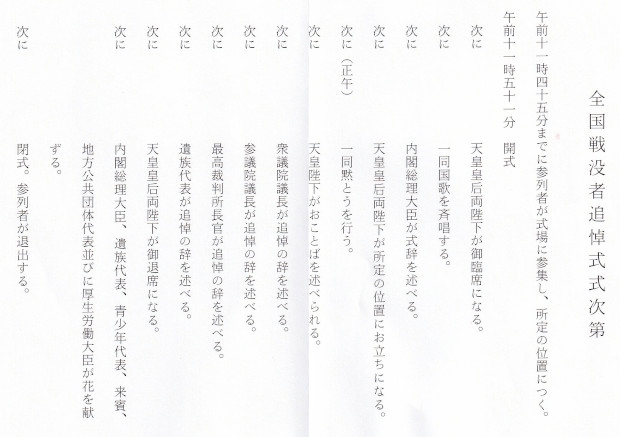 全国戦没者追悼式式次第
午前十一時四十五分までに参列者が式場に参集し、所定の位置につく。
午前十一時五十一分　開式
次に　天皇皇后両陛下が御臨席になる。
次に　一同国歌を斉唱する。
次に　内閣総理大臣が式辞を述べる。
次に　天皇皇后両陛下が所定の位置にお立ちになる。
次に（正午）　一同黙とうを行う。
次に　天皇陛下がおことばを述べられる。
次に　衆議院議長が追悼の辞を述べる。
次に　参議院議長が追悼の辞を述べる。
次に　最高裁判所長官が追悼の辞を述べる。
次に　遺族代表が追悼の辞を述べる。
次に　天皇皇后両陛下が御退席になる。
次に　内閣総理大臣、遺族代表、青少年代表、来賓、
地方公共団体代表並びに厚生労働大臣が花を献
ずる。
次に　閉式。参列者が退出する。